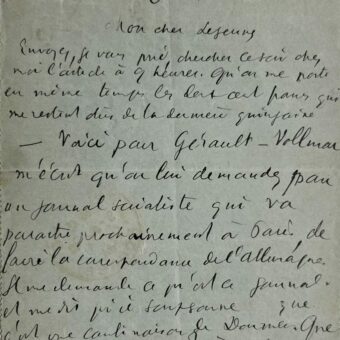 Mon cher Lejeune
Envoyez, je vous prie, chercher ce soir chez
moi l'article à 9 heures. Qu'on me porte
en même temps les deux cent francs qui
me restent dûs de la dernière quinzaine
— Voici pour Gérault – Vollmar
m'écrit qu'on lui demande, pour
un journal socialiste qui va
paraître prochainement à Paris, de
faire la correspondance de l'Allemagne
Il me demande ce qu'est ce journal
et me dit qu'il soupçonne que
c'est une combinaison de Doumer. Que